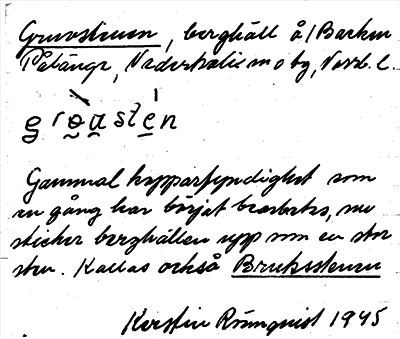 Gruvstenen, berghäll å/Backen
Pålänge, Nederkalix m o bg, Norrb. l.
groastén
Gammal kopparfyndighet som
en gång har börjat bearbetas, nu
sticker berghällen upp som en stor
sten. Kallas också Bruksstenen
Kerstin Rönnquist 1945